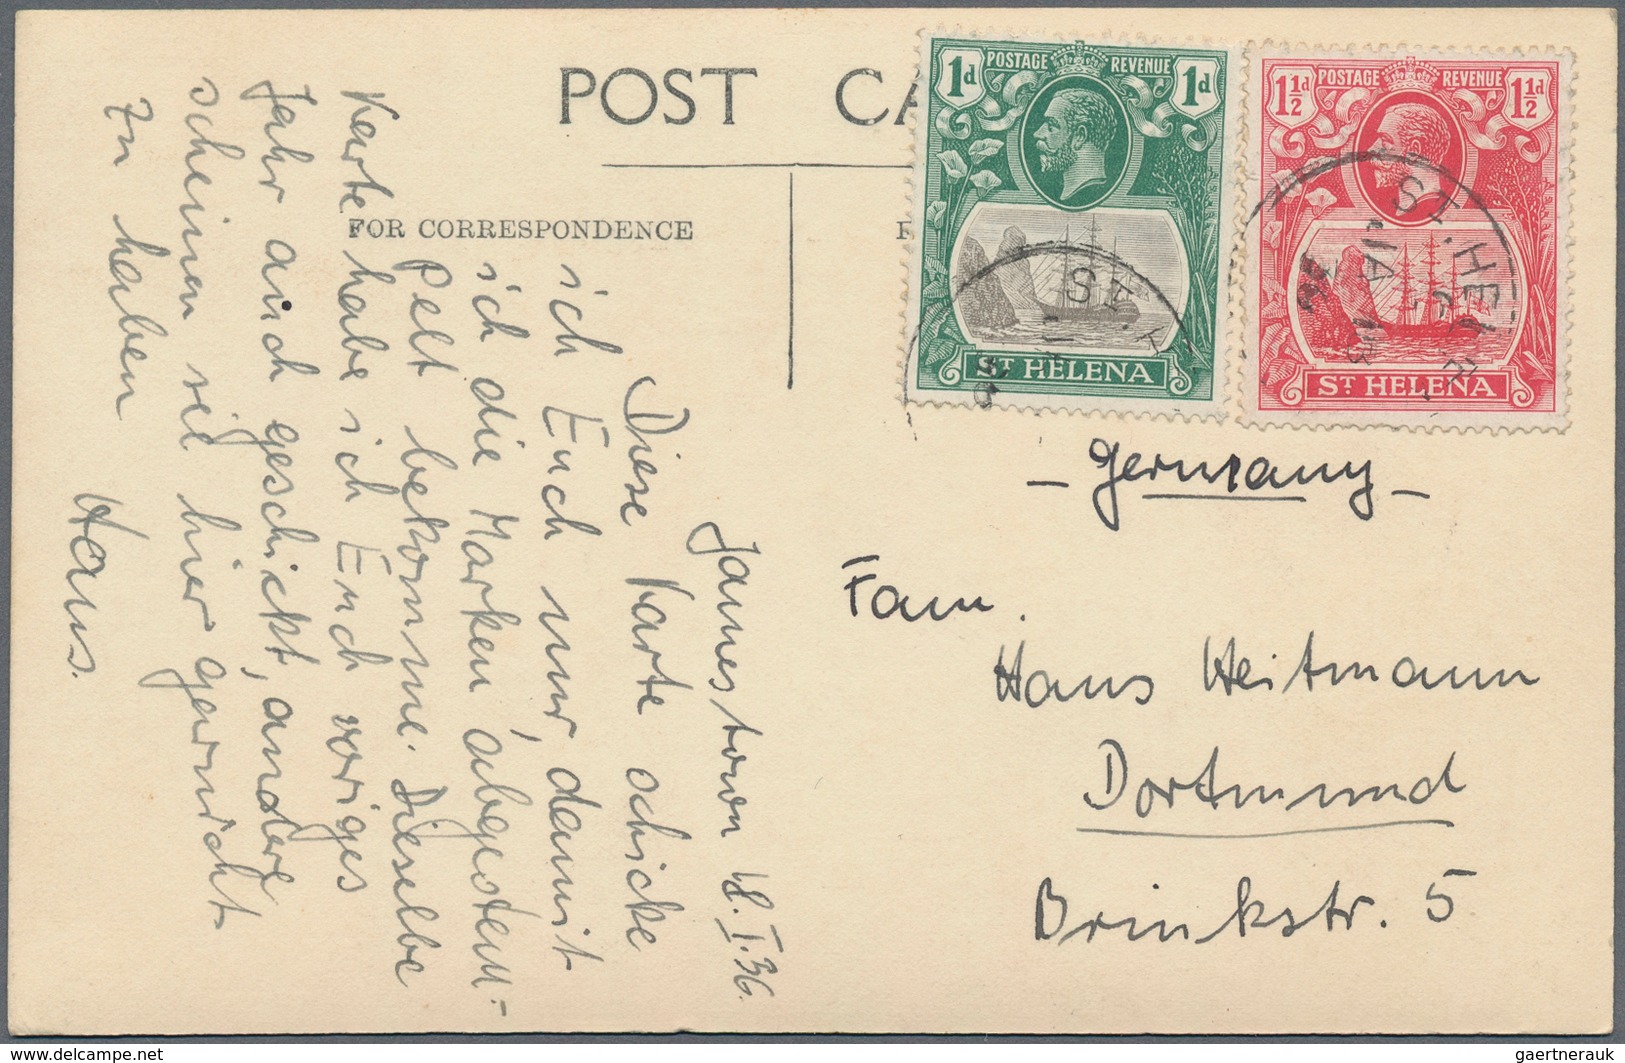 POST CA
FOR CORRESPONDENCE
1d POSTAGE REVENUE 1d
ST HELENA
1½d POSTAGE REVENUE 1½d
ST HELENA
ST. HE
ST. HELE
JA 18
Jamestown 18.I.36.
Diese Karte schicke
ich Euch nur, damit
ich die Marken abgestem-
pelt bekomme. Dieselbe
Karte habe ich Euch voriges
Jahr auch geschickt, andere
scheinen sie hier garnicht
zu haben
Hans.
- Germany -
Fam.
Hans Heitmann
Dortmund
Brinkstr. 5
www.delcampe.net
gaertnerauk